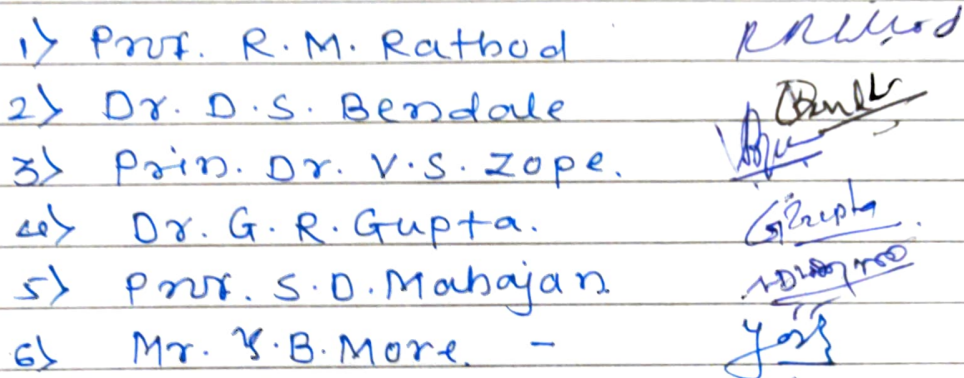 1) Prof. R.M. Rathod
2) Dr. D.S. Bendale
3) Prin. Dr. V.S. Zope.
4) Dr. G.R. Gupta. GRGupta.
5) Prof. S.D. Mahajan
6) Mr. Y.B. More. -